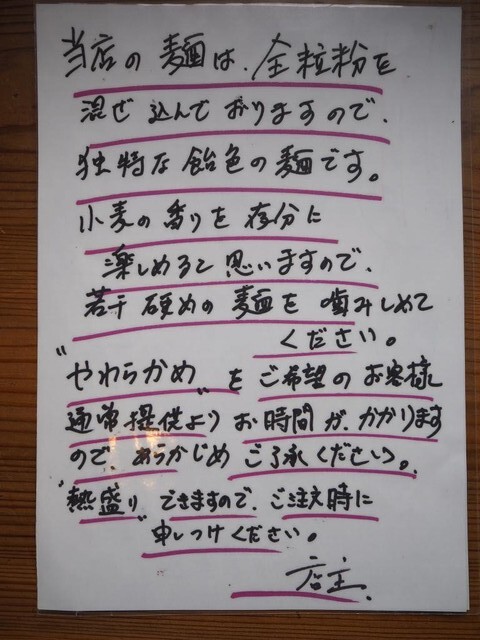 当店の麺は、全粒粉を
混ぜ込んでおりますので、
独特な飴色の麺です。
小麦の香りを存分に
楽しめると思いますので、
若干硬めの麺を噛みしめて
ください。
"やわらかめ"をご希望のお客様
通常提供よりお時間が、かかります
ので、あらかじめご了承ください。
"熱盛り"できますので、ご注文時に
申しつけください。
店主